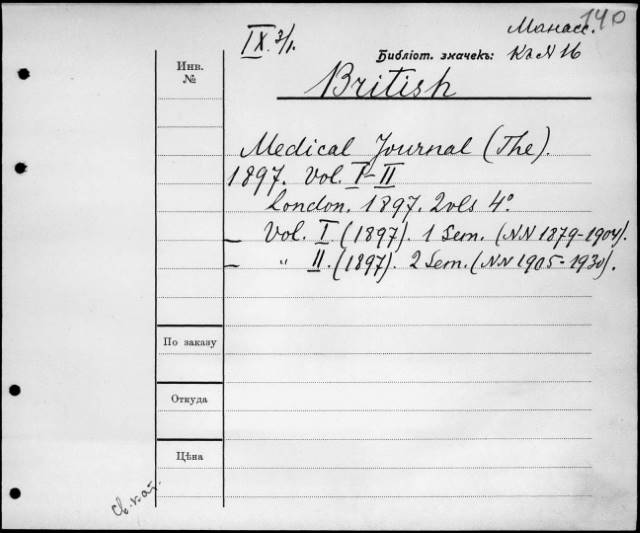 140
IX. 3/1.
Манасс.
Библіот. значекъ: К2 N 16
Инв.
№
British
Medical Journal (The).
1897. Vol. I-II
London. 1897. 2 vls 4°
— Vol. I. (1897). 1 Sem. (NN 1879-1904).
— " II. (1897). 2 Sem. (NN 1905-1930).
По заказу
Откуда
Цѣна
Св. кат.